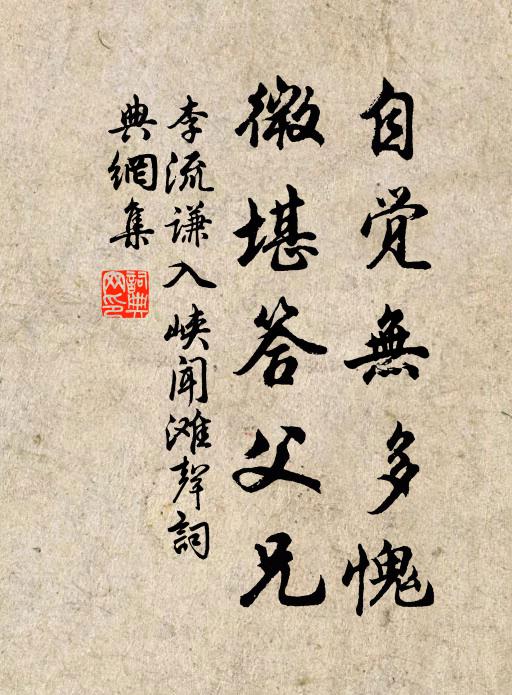 自觉無多愧
微堪答父兄
李流謙入峡闻滩聲詞
典網集
詞典网印